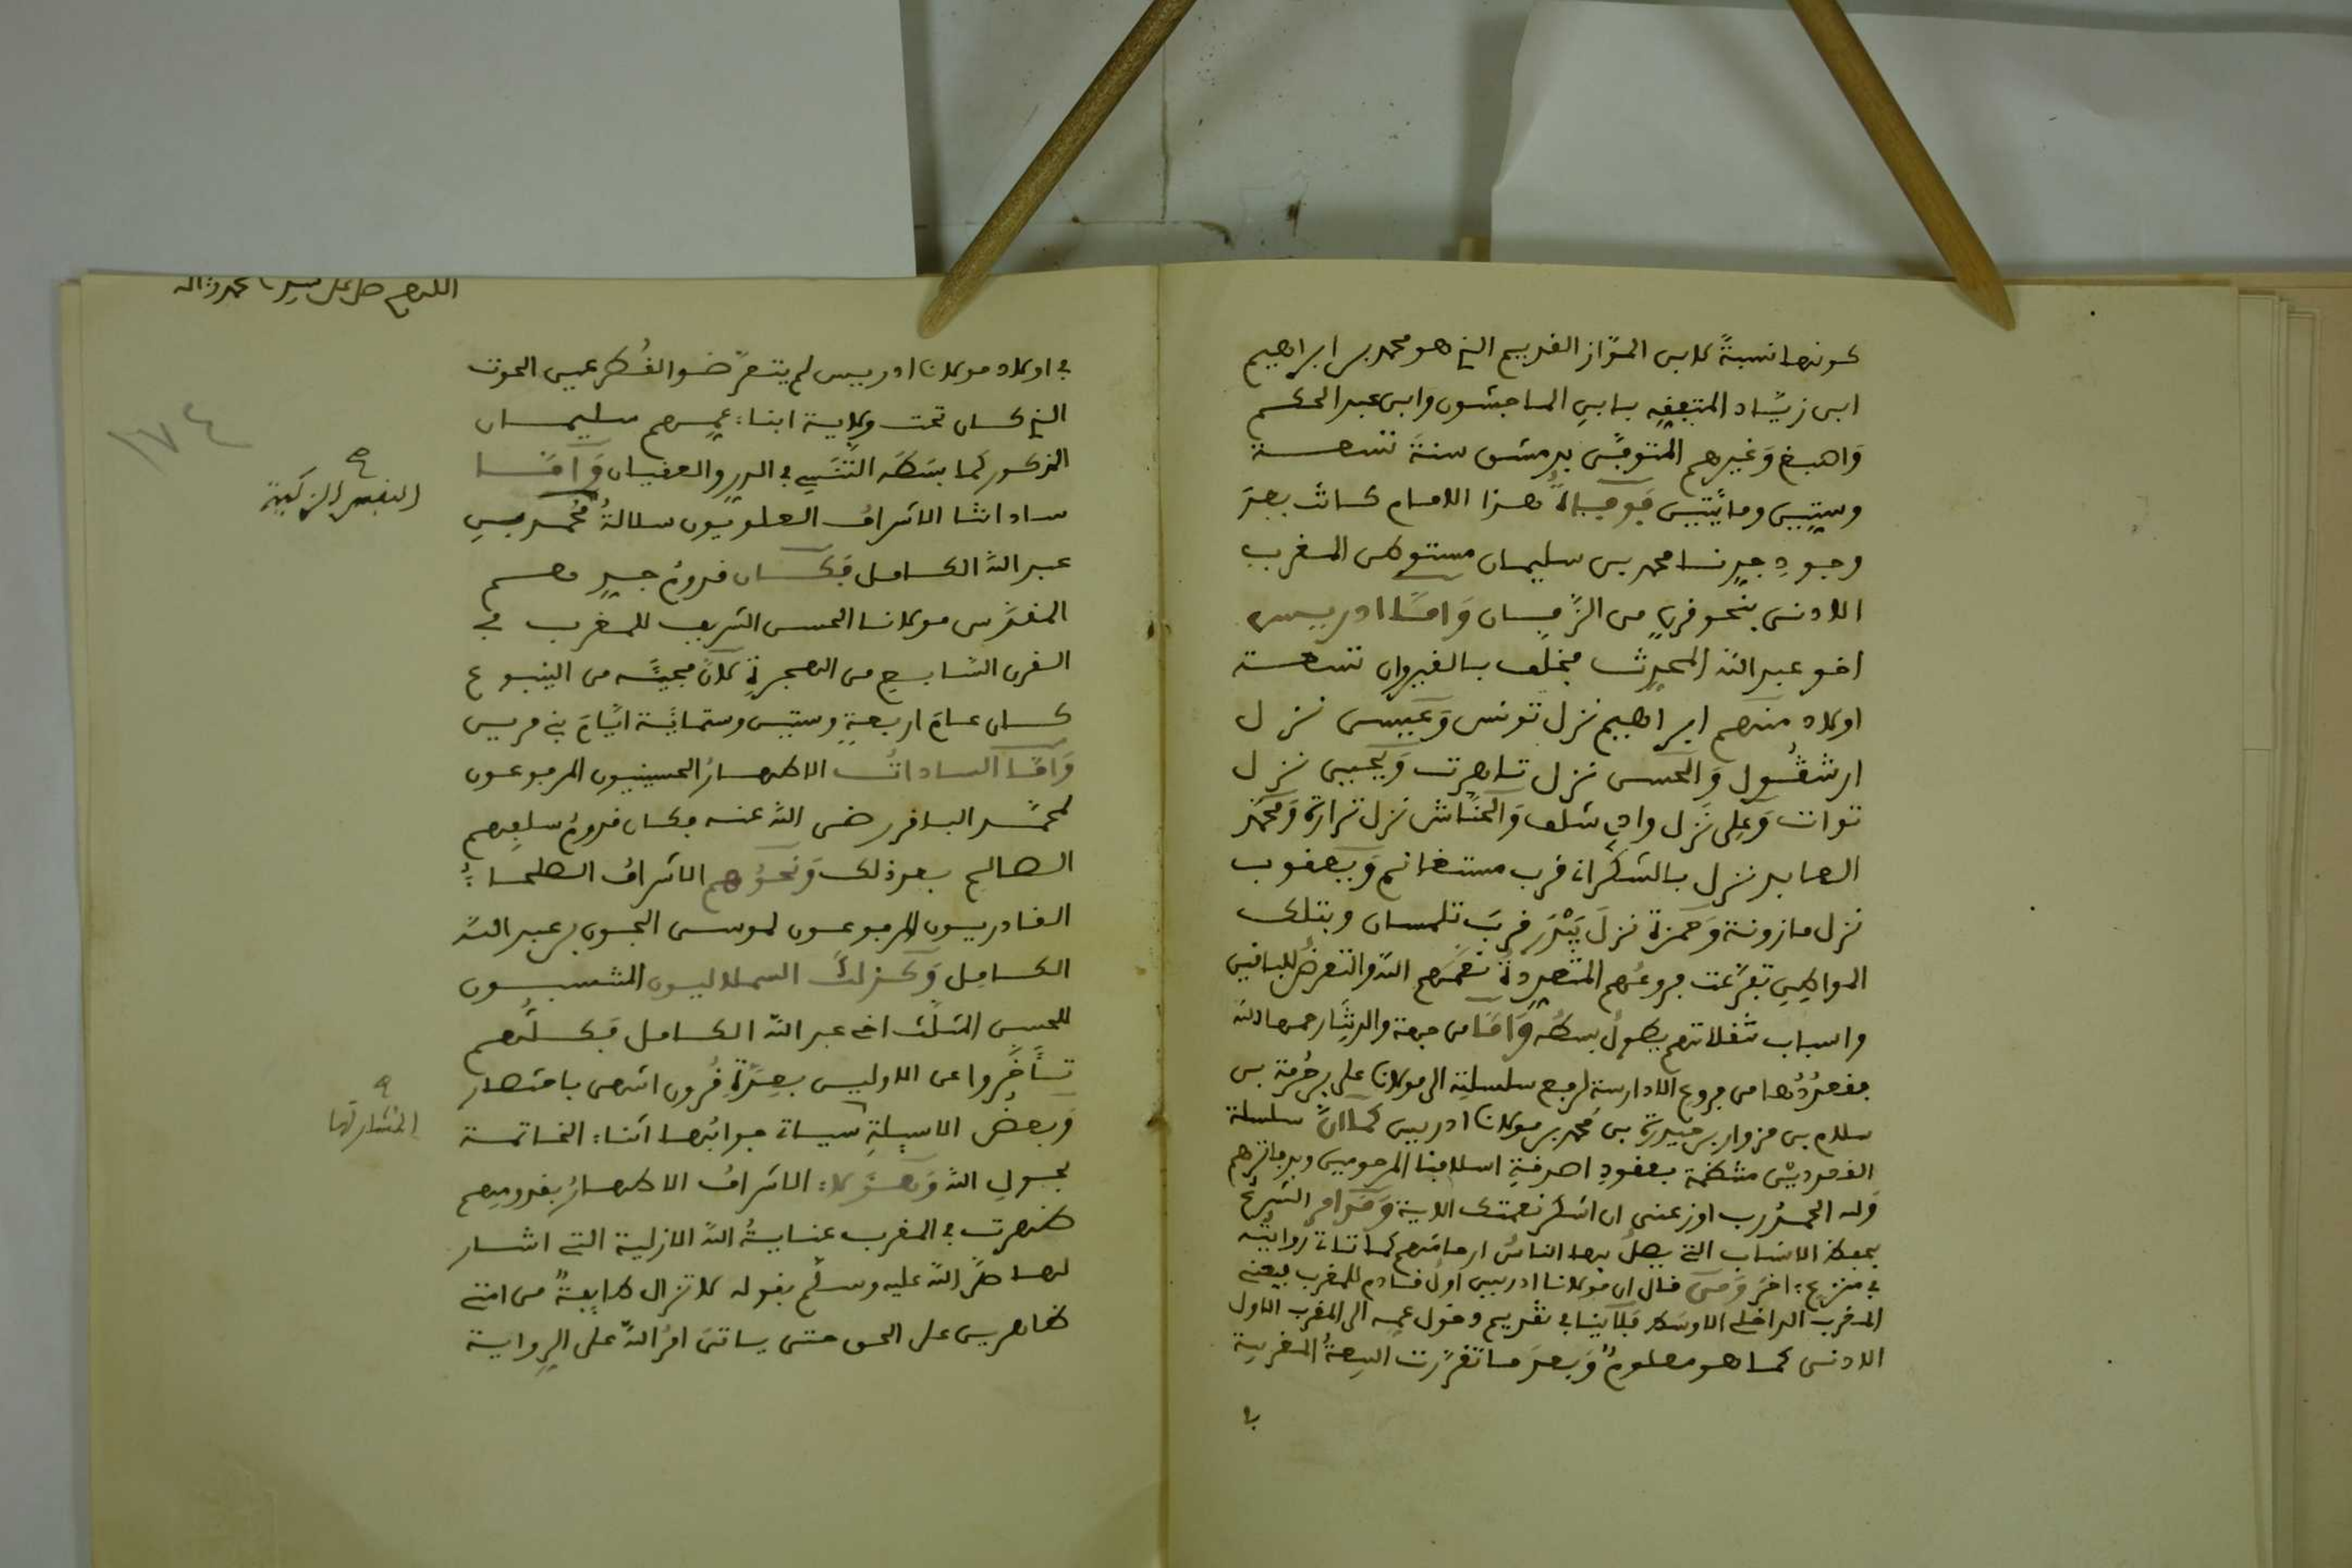 كونها نسبةً لابن الموّاز القديم الذي هو محمد بن ابراهيم
ابن زيّاد المتفقِه بابنِ الماجشون وابن عبد الحكم
وَاصبغ وَغيرهم المتوفّى بدمشق سنةَ تسعة
وستين ومائتين فَوفاةُ هذا الامام كانت بعدَ
وجودِ جدِنا محمد بن سليمان مستوطن المغرب
الادنى بنحو قرنٍ من الزّمان وَامّا ادريس
اخو عبد الله المحدِث فخلف بالقيروان تسعة
اولاد منهم ابراهيم نزل تونس وَعيسى نزل
ارشقُول وَالحسن نزل تاهرت وَيحيى نزل
توات وَعلى نزل وادي شلف وَالحنّاش نزل ترارة وَمحمّد
العابد نزل بالشكران قرب مستغانم وَيعقوب
نزل مازونة وَحمزة نزلَ قربَ تلمسان وبتلك
المواطِنِ تفرّعت فروعُهم المتعدِدةُ نفعَهم الله والتعرضُ للباقين
واسباب تنقلاتهم يطولُ بسطُه وَامّا من جهة والدتِنا رحمها الله
فقعدُدُها من فروع الادارسة لرفع سلسلتِه الى مولانا على بن حُرمة بن
سلام بن مزوار بن حيدرة بن محمد بن مولانا ادريس كما انّ سلسلة
القعدديْن منتظمة بعقودِ اصدقةِ اسلافنا المرحومين وبدفاترهم
وَله الحمدُ رب اوزعنى ان اشكر نعمتك الاية وَمن اوامر الشرع
بحفظ الانساب التى يصلُ بها الناسُ ارحامَهم كما تاتى روايتُه
في منزع: اخرَ وَمن قال ان مولانا ادريس اولُ قادم للمغرب فيعنى
المغرب الداخلى الاوسط فلا ينافى تقديم دخول عمِه الى المغرب الاول
الادنى كما هو معلومٌ وَبعدَ ما تقرّرت البيعةُ المغربية
اللهم صل على سيدنا محمد واله
١٧٤
في اولاد مولانا ادريس لم يتعرّضوا لقُطر عين الحوت
الذي كان تحت وِلاية ابنا: عمِهم سليمان
المذكور كما بسَطَه التنَسِي في الدرر والعقيان وَامّا
ساداتنا الاشرافُ العلويون سلالةُ محُمد بنِ
النفس الزكية
عبد الله الكامل فكان قدومُ جدِهم
المقدّس مولانا الحسن الشريف للمغرب في
القرن السّابع من الهجرةِ لانّ مجيئَه من الينبوع
كان عامَ اربعةٍ وستين وستمائة ايّامَ بني مرين
وَامّا الساداتُ الاطهارُ الحسينيون المرفوعون
لمحمّد الباقر رضى الله عنه فكان قدومُ سلفِهم
الصالح بعد ذلك وَنحوُهم الاشرافُ الصلحا:ُ
القادريون المرفوعون لموسى الجون بن عبد الله
الكامل وَكذلك السملاليون المنتسبون
للحسن المثلّث اخى عبد الله الكامل فكلُّهم
تأخّروا عن الاولين بعِدّةِ قُرون انتهى باختصار
وَبعضُ الاسيلةِ سياتى جوابُها اثنا: الخاتمة
المشار لها
بحول الله وَهؤلا: الاشرافُ الاطهارُ بقدومِهم
ظهرت في المغرب عنايةُ الله الازلية التى اشار
لها صلّى الله عليه وسلّم بقوله لا تزال طايفةٌ من امتى
ظاهرين على الحق حتى ياتى امرُ الله على الرواية